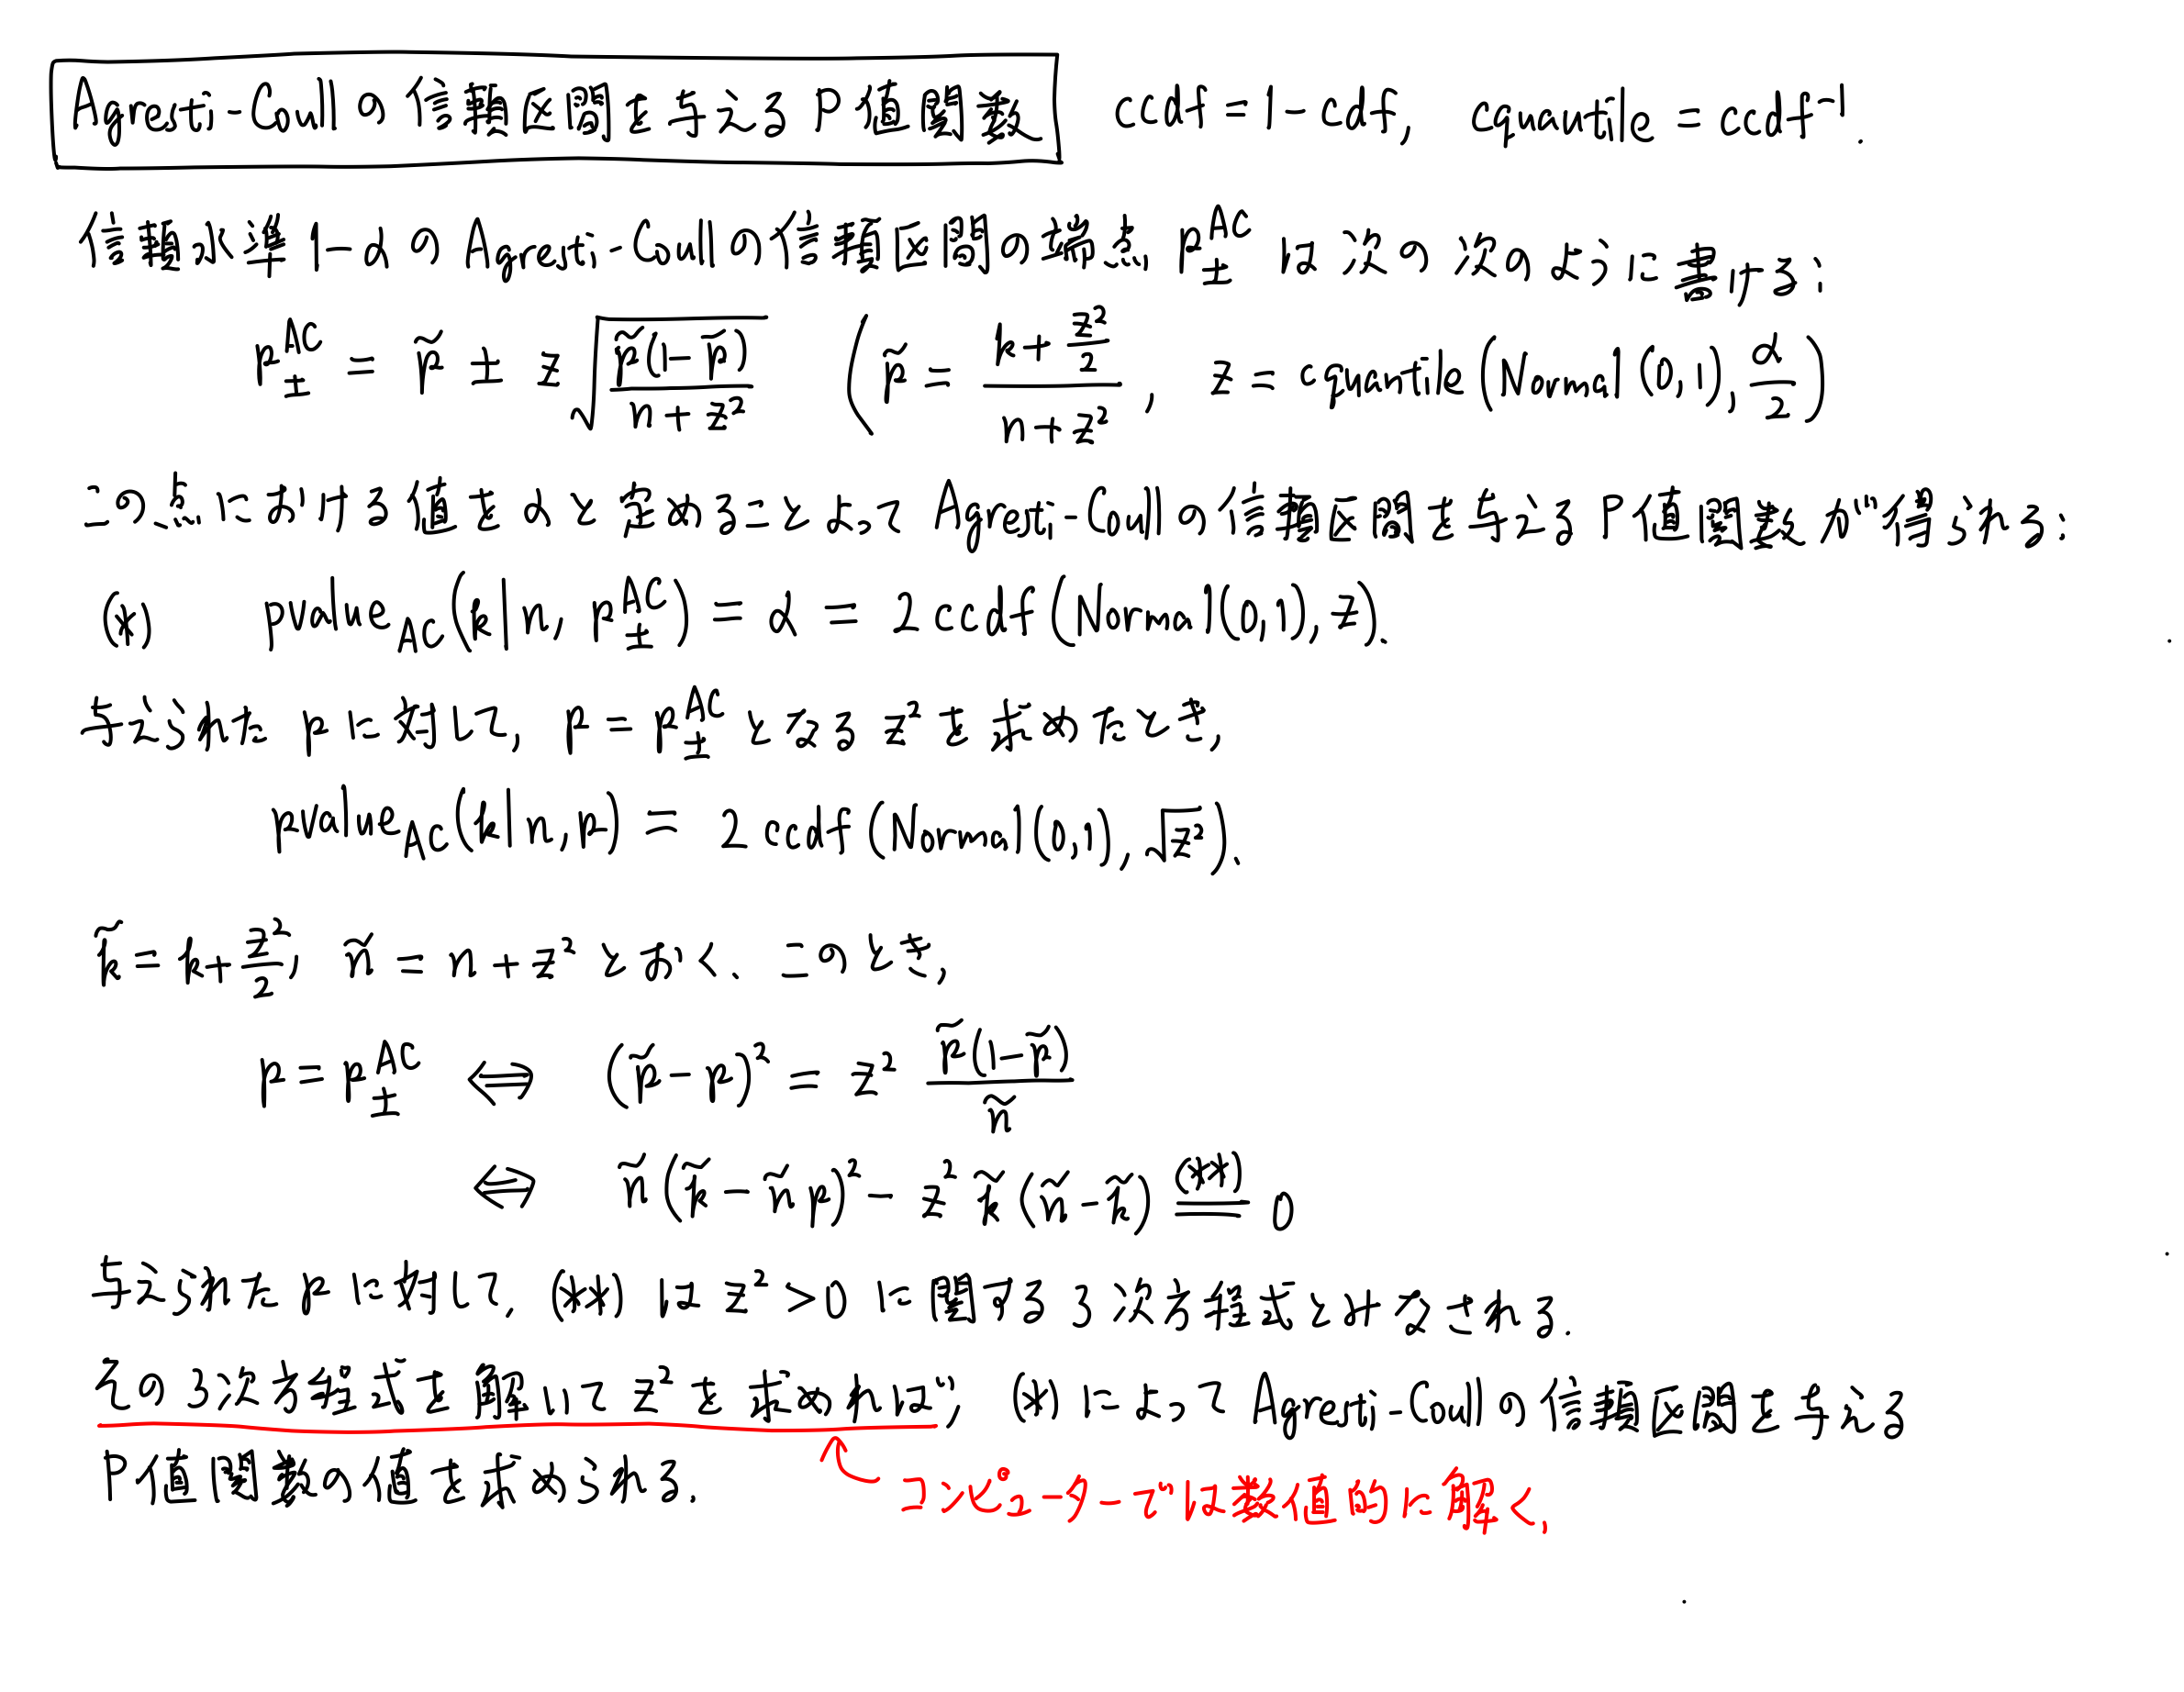 Agresti-Coullの信頼区間を与えるP値函数 ccdf = 1 - cdf, cquantile = ccdf⁻¹.
信頼水準1-αのAgresti-Coullの信頼区間の端点 p±^AC は次の次のように書ける:
p±^AC = p̃ ± z√(p̃(1-p̃)/(n+z²)) (p̃ = (k+z²/2)/(n+z²), z = cquantile(Normal(0,1), α/2)
この点における値をαと定めることによってAgresti-Coullの信頼区間を与えるP値函数が得られる:
(*) pvalue_AC(k|n, p±^AC) = α = 2ccdf(Normal(0,1), z).
与えられたpに対して, p = p±^AC となる z² を求めたとき,
pvalue_AC(k|n, p) = 2ccdf(Normal(0,1), √z²).
k̃ = k + z²/2, ñ = n + z² とおく. このとき,
p = p±^AC ⇔ (p̃-p)² = z² p̃(1-p̃)/ñ
⇔ ñ(k̃-ñp)² - z² k̃(ñ-k̃) (**)= 0
与えられたpに対して, (**) は z²>0 に関する3次方程式とみなされる.
その3次方程式を解いて z² を求めれば, (*) によってAgresti-Coullの信頼区間を与える
P値函数の値を求められる.
コンピューターでは数値的に解く.